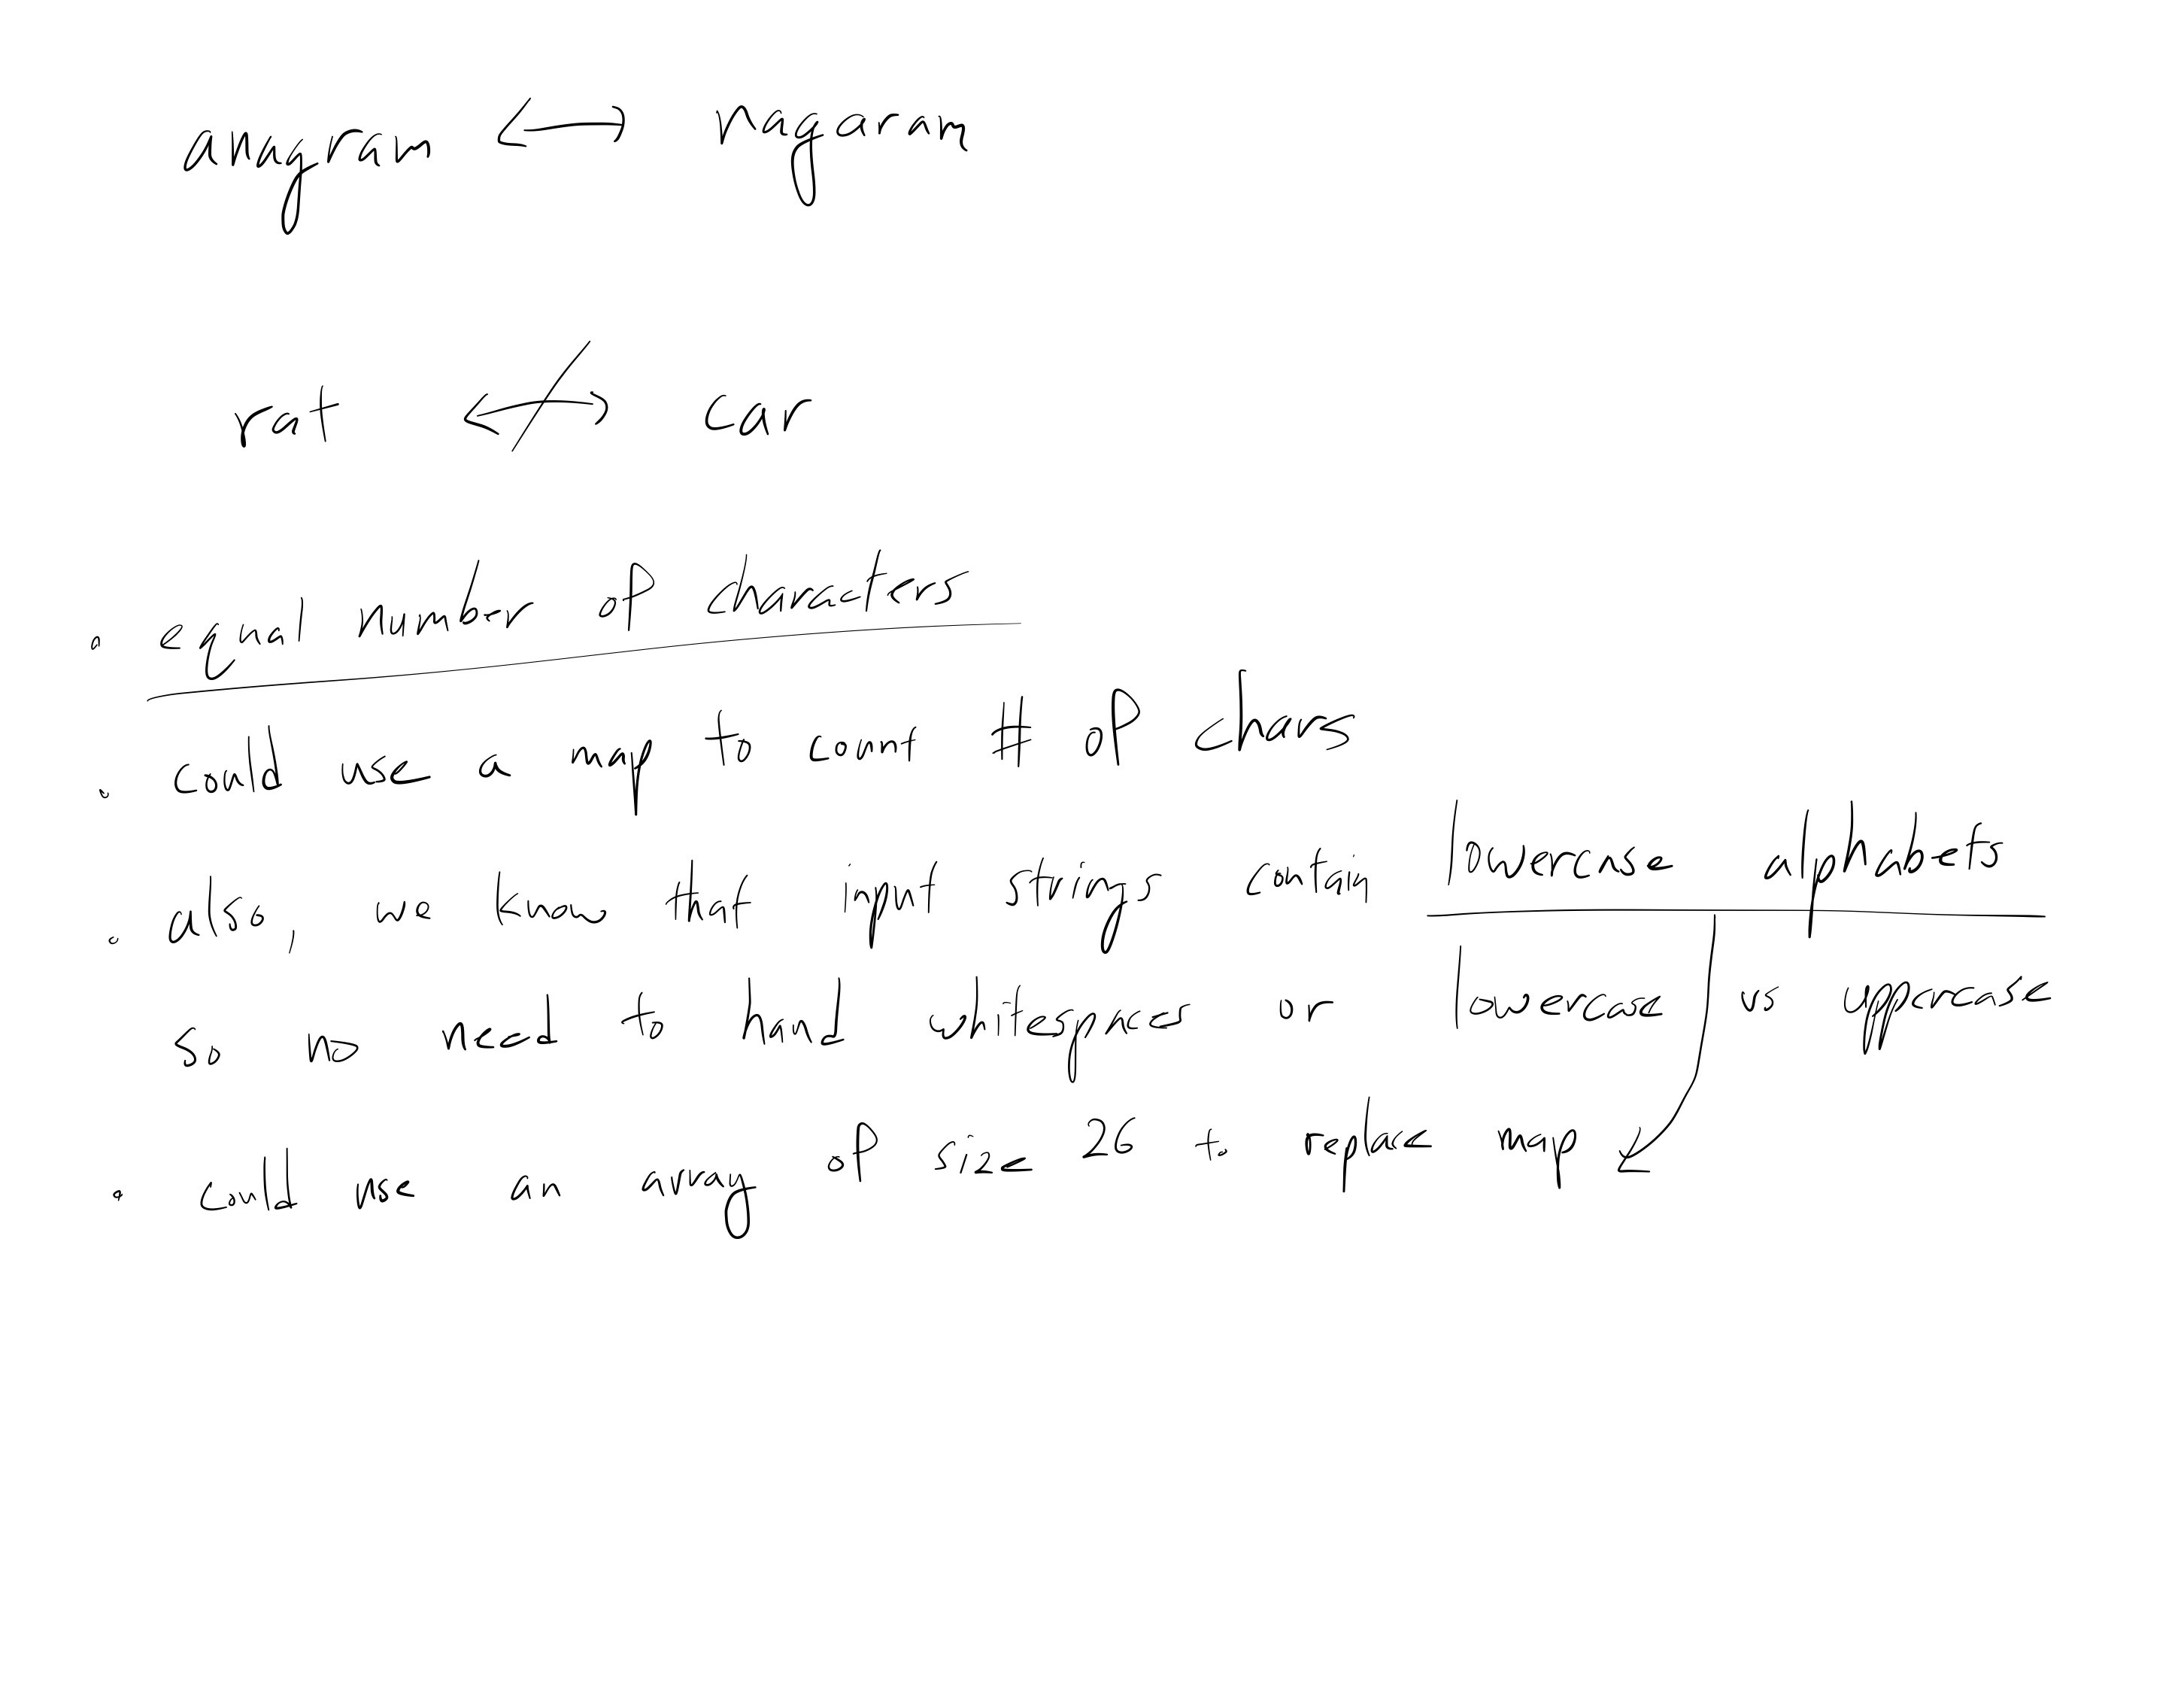 anagram <-> nagaram
rat <-/-> car
• equal number of characters
• could use a map to count # of chars
• also, we know that input strings contain lowercase alphabets
so no need to hand whitespaces or lowercase vs uppercase
• could use an array of size 26 to replace map